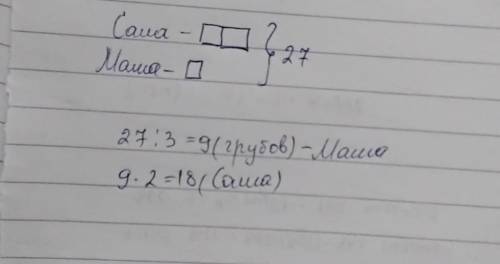 Саша -
Маша - } 27
27:3=9(грубов)-Маша
9·2=18(Саша)